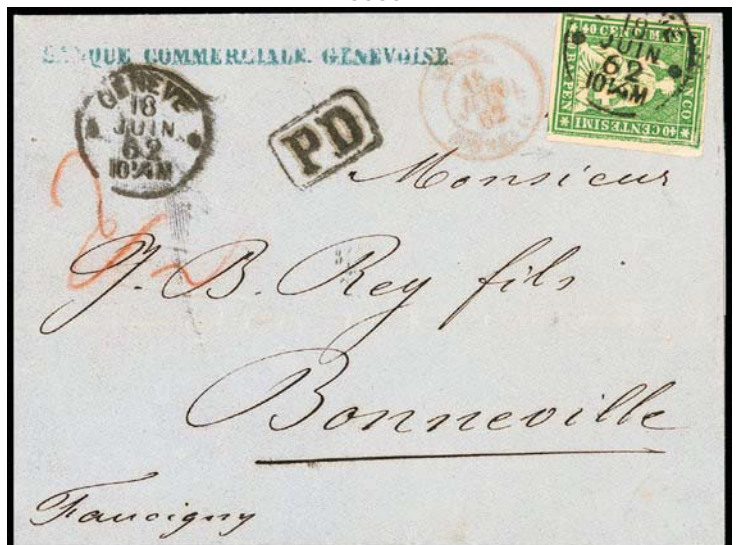 BANQUE COMMERCIALE GENEVOISE
GENÈVE
18
JUIN
62
10¼M
PD
18
JUIN
62
18
JUIN
62
10¼M
40 CENTIMES
FRANCO
40 CENTESIMI
40 RAPPEN
Monsieur
J. B. Rey fils
Bonneville
Faucigny